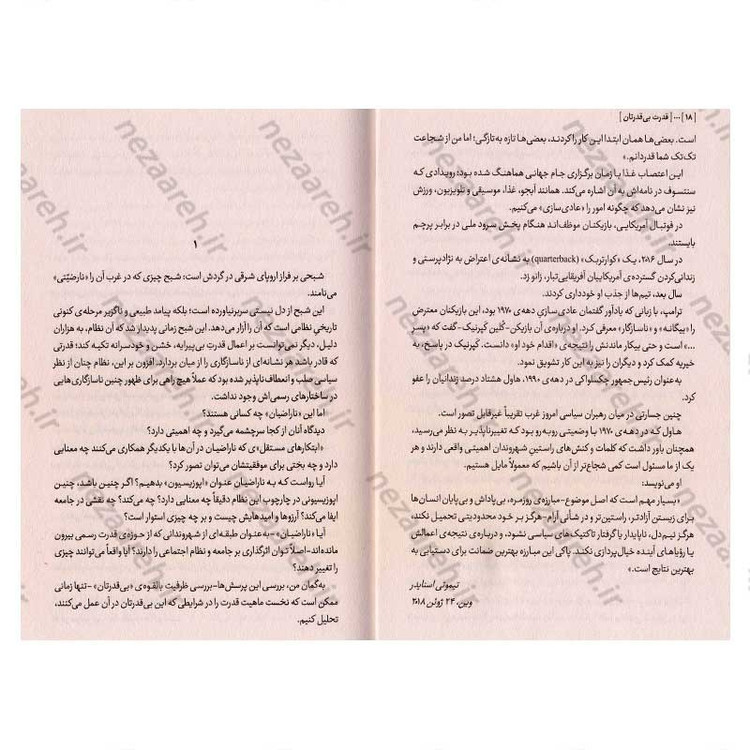 [ ۱۸ ] ... [ قدرت بی‌قدرتان ]
است. بعضی‌ها همان ابتدا این کار را کردند، بعضی‌ها تازه به تازگی؛ اما من از شجاعت
تک‌تک شما قدردانم.»
این اعتصاب غذا با زمان برگزاری جام جهانی هماهنگ شده بود؛ رویدادی که
سنتسوف در نامه‌اش به آن اشاره می‌کند. همانند آبجو، غذا، موسیقی و تلویزیون، ورزش
نیز نشان می‌دهد که چگونه امور را «عادی‌سازی» می‌کنیم.
در فوتبال آمریکایی، بازیکنان موظف‌اند هنگام پخش سرود ملی در برابر پرچم
بایستند.
در سال ۲۰۱۶، یک «کوارتربک» (quarterback) به نشانه‌ی اعتراض به نژادپرستی و
زندانی‌کردن گسترده‌ی آمریکاییان آفریقایی‌تبار، زانو زد.
سال بعد، تیم‌ها از جذب او خودداری کردند.
ترامپ، با زبانی که یادآور گفتمان عادی‌سازی دهه‌ی ۱۹۷۰ بود، این بازیکنان معترض
را «بیگانه» و «ناسازگار» معرفی کرد. او درباره‌ی آن بازیکن- کُلین کَپرنیک -گفت که «پسرِ
...» است و حتی بیکار ماندنش را نتیجه‌ی «اقدام خود او» دانست. کَپرنیک در پاسخ، به
خیریه کمک کرد و دیگران را نیز به این کار تشویق نمود.
به‌عنوان رئیس‌جمهور چکسلواکی در دهه‌ی ۱۹۹۰، هاول هشتاد درصد زندانیان را عفو
کرد.
چنین جسارتی در میان رهبران سیاسی امروز غرب تقریباً غیرقابل تصور است.
هاول که در دهه‌ی ۱۹۷۰ با وضعیتی روبه‌رو بود که تغییرناپذیر به نظر می‌رسید،
همچنان باور داشت که کلمات و کنش‌های راستین شهروندان اهمیتی واقعی دارند و هر
یک از ما مسئول است کمی شجاع‌تر از آن باشیم که معمولاً مایل هستیم.
او می‌نویسد:
«بسیار مهم است که اصل موضوع -مبارزه‌ی روزمره، بی‌پاداش و بی‌پایان انسان‌ها
برای زیستن آزادتر، راستین‌تر و در شأنی آرام- هرگز بر خود محدودیتی تحمیل نکند،
هرگز نیم‌دل، ناپایدار یا گرفتار تاکتیک‌های سیاسی نشود، و درباره‌ی نتیجه‌ی اعمالش
یا رؤیاهای آینده خیال‌پردازی نکند. پاکی این مبارزه بهترین ضمانت برای دستیابی به
بهترین نتایج است.»
تیموتی اسنایدر
وین، ۲۴ ژوئن ۲۰۱۸
۱
شبحی بر فراز اروپای شرقی در گردش است: شبح چیزی که در غرب آن را «نارضیّتی»
می‌نامند.
این شبح از دل نیستی سربرنیاورده است؛ بلکه پیامد طبیعی و ناگزیر مرحله‌ی کنونی
تاریخیِ نظامی است که آن را آزار می‌دهد. این شبح زمانی پدیدار شد که آن نظام، به هزاران
دلیل، دیگر نمی‌توانست بر اعمال قدرت بی‌پیرایه، خشن و خودسرانه تکیه کند؛ قدرتی
که قادر باشد هر نشانه‌ای از ناسازگاری را از میان بردارد. افزون بر این، نظام چنان از نظر
سیاسی صلب و انعطاف‌ناپذیر شده بود که عملاً هیچ راهی برای ظهور چنین ناسازگاری‌هایی
در ساختارهای رسمی‌اش وجود نداشت.
اما این «ناراضیان» چه کسانی هستند؟
دیدگاه آنان از کجا سرچشمه می‌گیرد و چه اهمیتی دارد؟
«ابتکارهای مستقل»ی که ناراضیان در آن‌ها با یکدیگر همکاری می‌کنند چه معنایی
دارد و چه بختی برای موفقیتشان می‌توان تصور کرد؟
آیا رواست که به ناراضیان عنوان «اپوزیسیون» بدهیم؟ اگر چنین باشد، چنین
اپوزیسیونی در چارچوب این نظام دقیقاً چه معنایی دارد؟ چه می‌کند؟ چه نقشی در جامعه
ایفا می‌کند؟ آرزوها و امیدهایش چیست و بر چه چیزی استوار است؟
آیا «ناراضیان» -به‌عنوان طبقه‌ای از شهروندانی که از حوزه‌ی قدرت رسمی بیرون
مانده‌اند- اصلاً توان اثرگذاری بر جامعه و نظام اجتماعی را دارند؟ آیا واقعاً می‌توانند چیزی
را تغییر دهند؟
به‌گمان من، بررسی این پرسش‌ها -بررسی ظرفیت بالقوه‌ی «بی‌قدرتان» -تنها زمانی
ممکن است که نخست ماهیت قدرت را در شرایطی که این بی‌قدرتان در آن عمل می‌کنند،
تحلیل کنیم.
nezaareh.ir